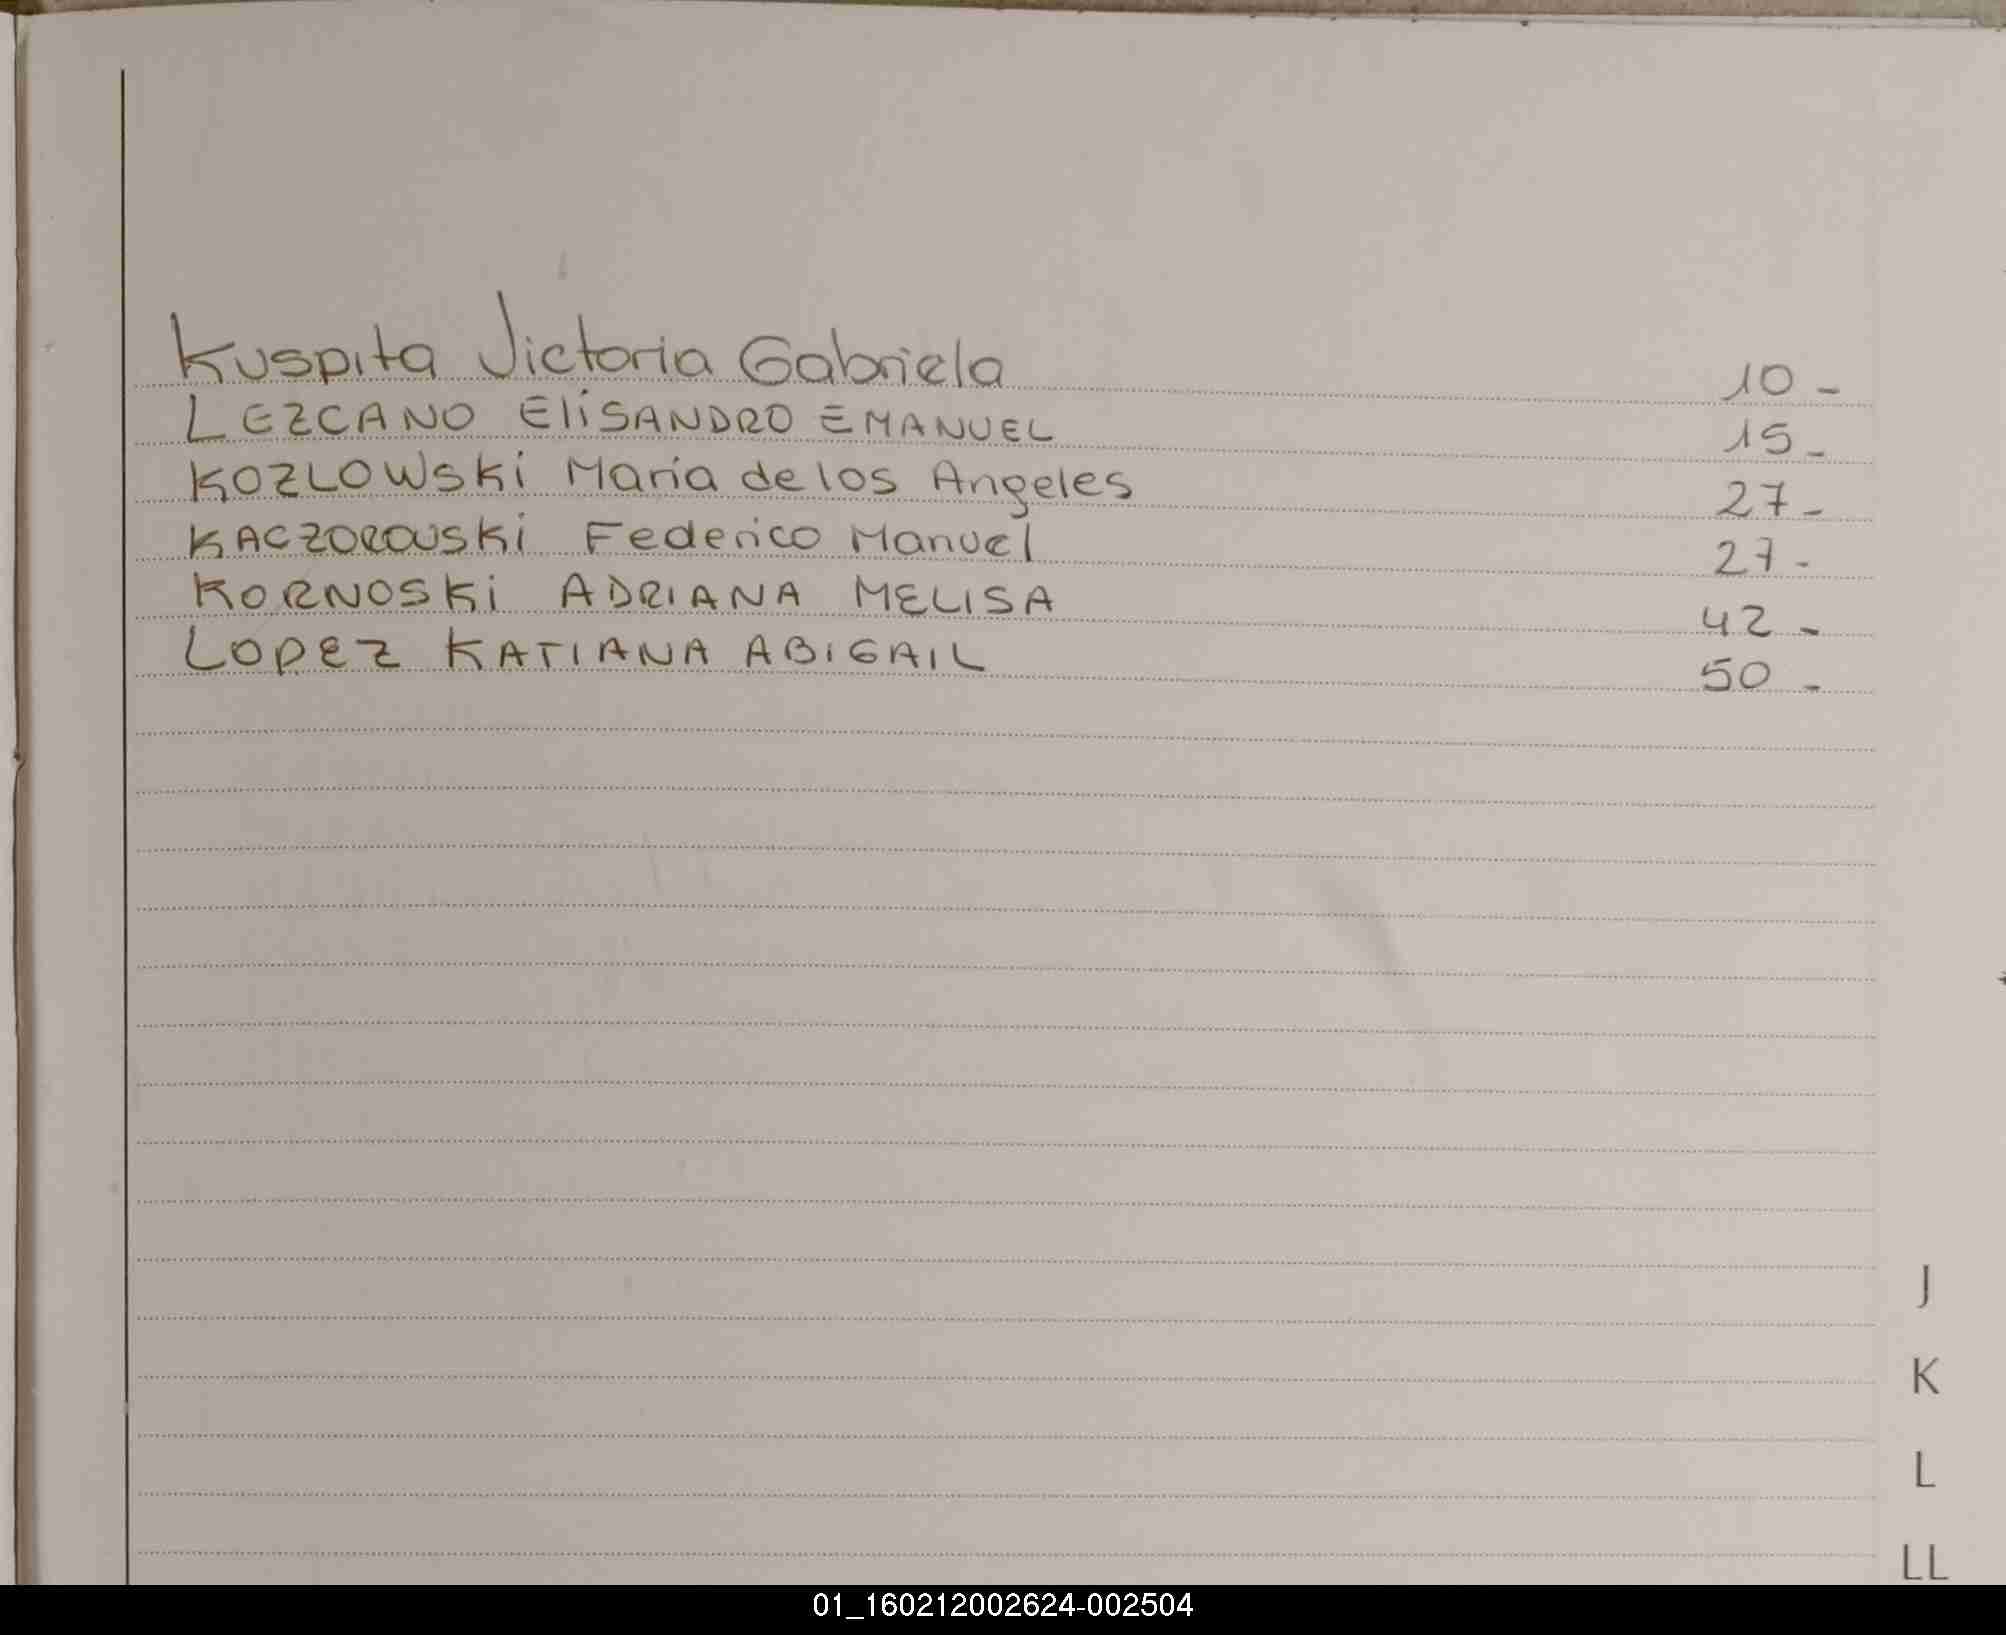 Kuspita Victoria Gabriela 10 -
LEZCANO EliSANDRO EMANUEL 15 -
KOZLOWSki Maria de los Angeles 27 -
KACZOROWSki Federico Manuel 27 -
KORNOSKi ADRIANA MELISA 42 -
LOPEZ KATIANA ABIGAIL 50 -
J
K
L
LL
01_160212002624-002504